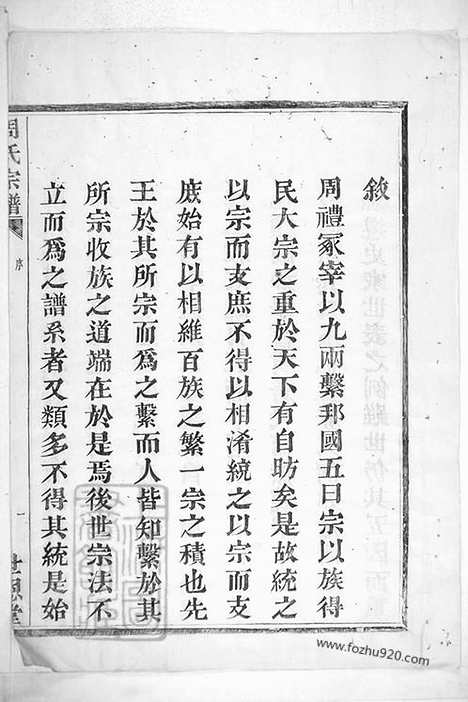 敘
周禮冢宰以九兩繫邦國五曰宗以族得
民大宗之重於天下有自昉矣是故統之
以宗而支庶不得以相淆統之以宗而支
庶始有以相維百族之繁一宗之積也先
王於其所宗而為之繫而人皆知繫於其
所宗收族之道端在於是焉後世宗法不
立而為之譜系者又類多不得其統是始
周氏宗譜
序
一
世恩堂
www.fozhu920.com